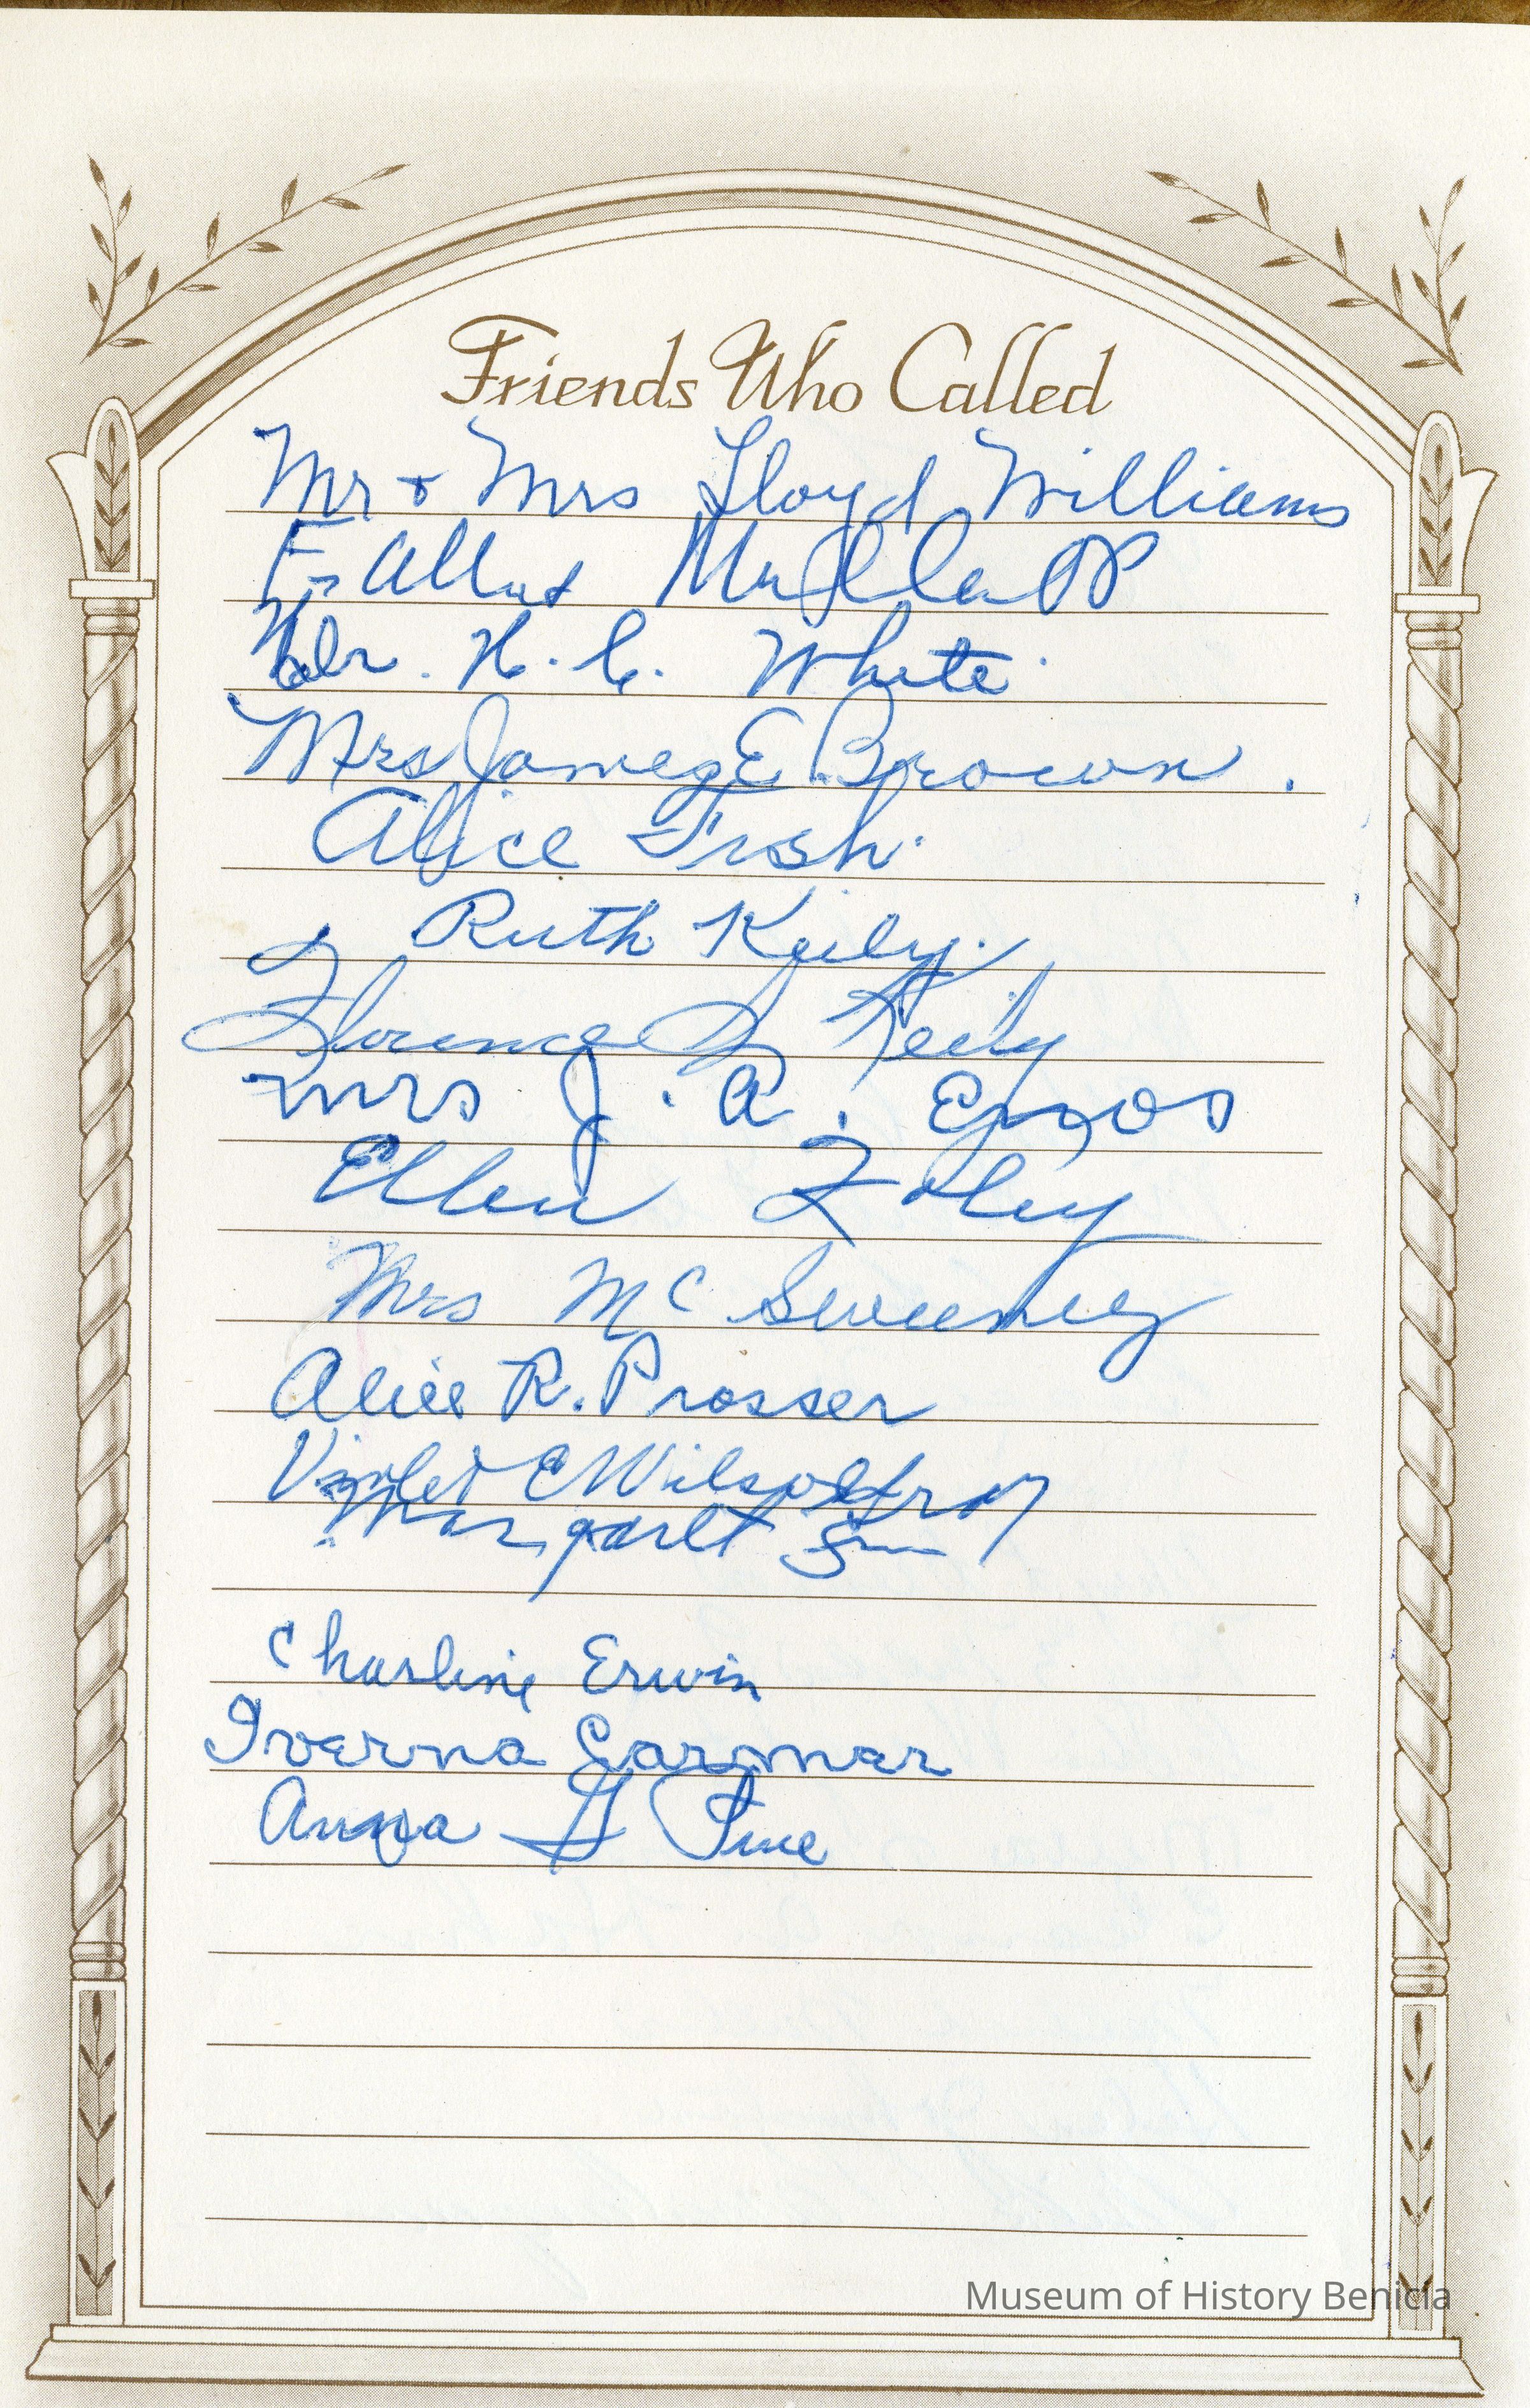 Friends Who Called
Mr & Mrs Lloyd Williams
Fr
Dr. H. C. White
Mrs James E Brown.
Alice Fish.
Ruth Keily.
Florence Keily
Mrs J. A. Enos
Ellen Foley
Mrs McSweeney
Alice R. Prosser
Violet E Wilson
Margaret
Charline Erwin
Iverna
Anna G
Museum of History Benicia